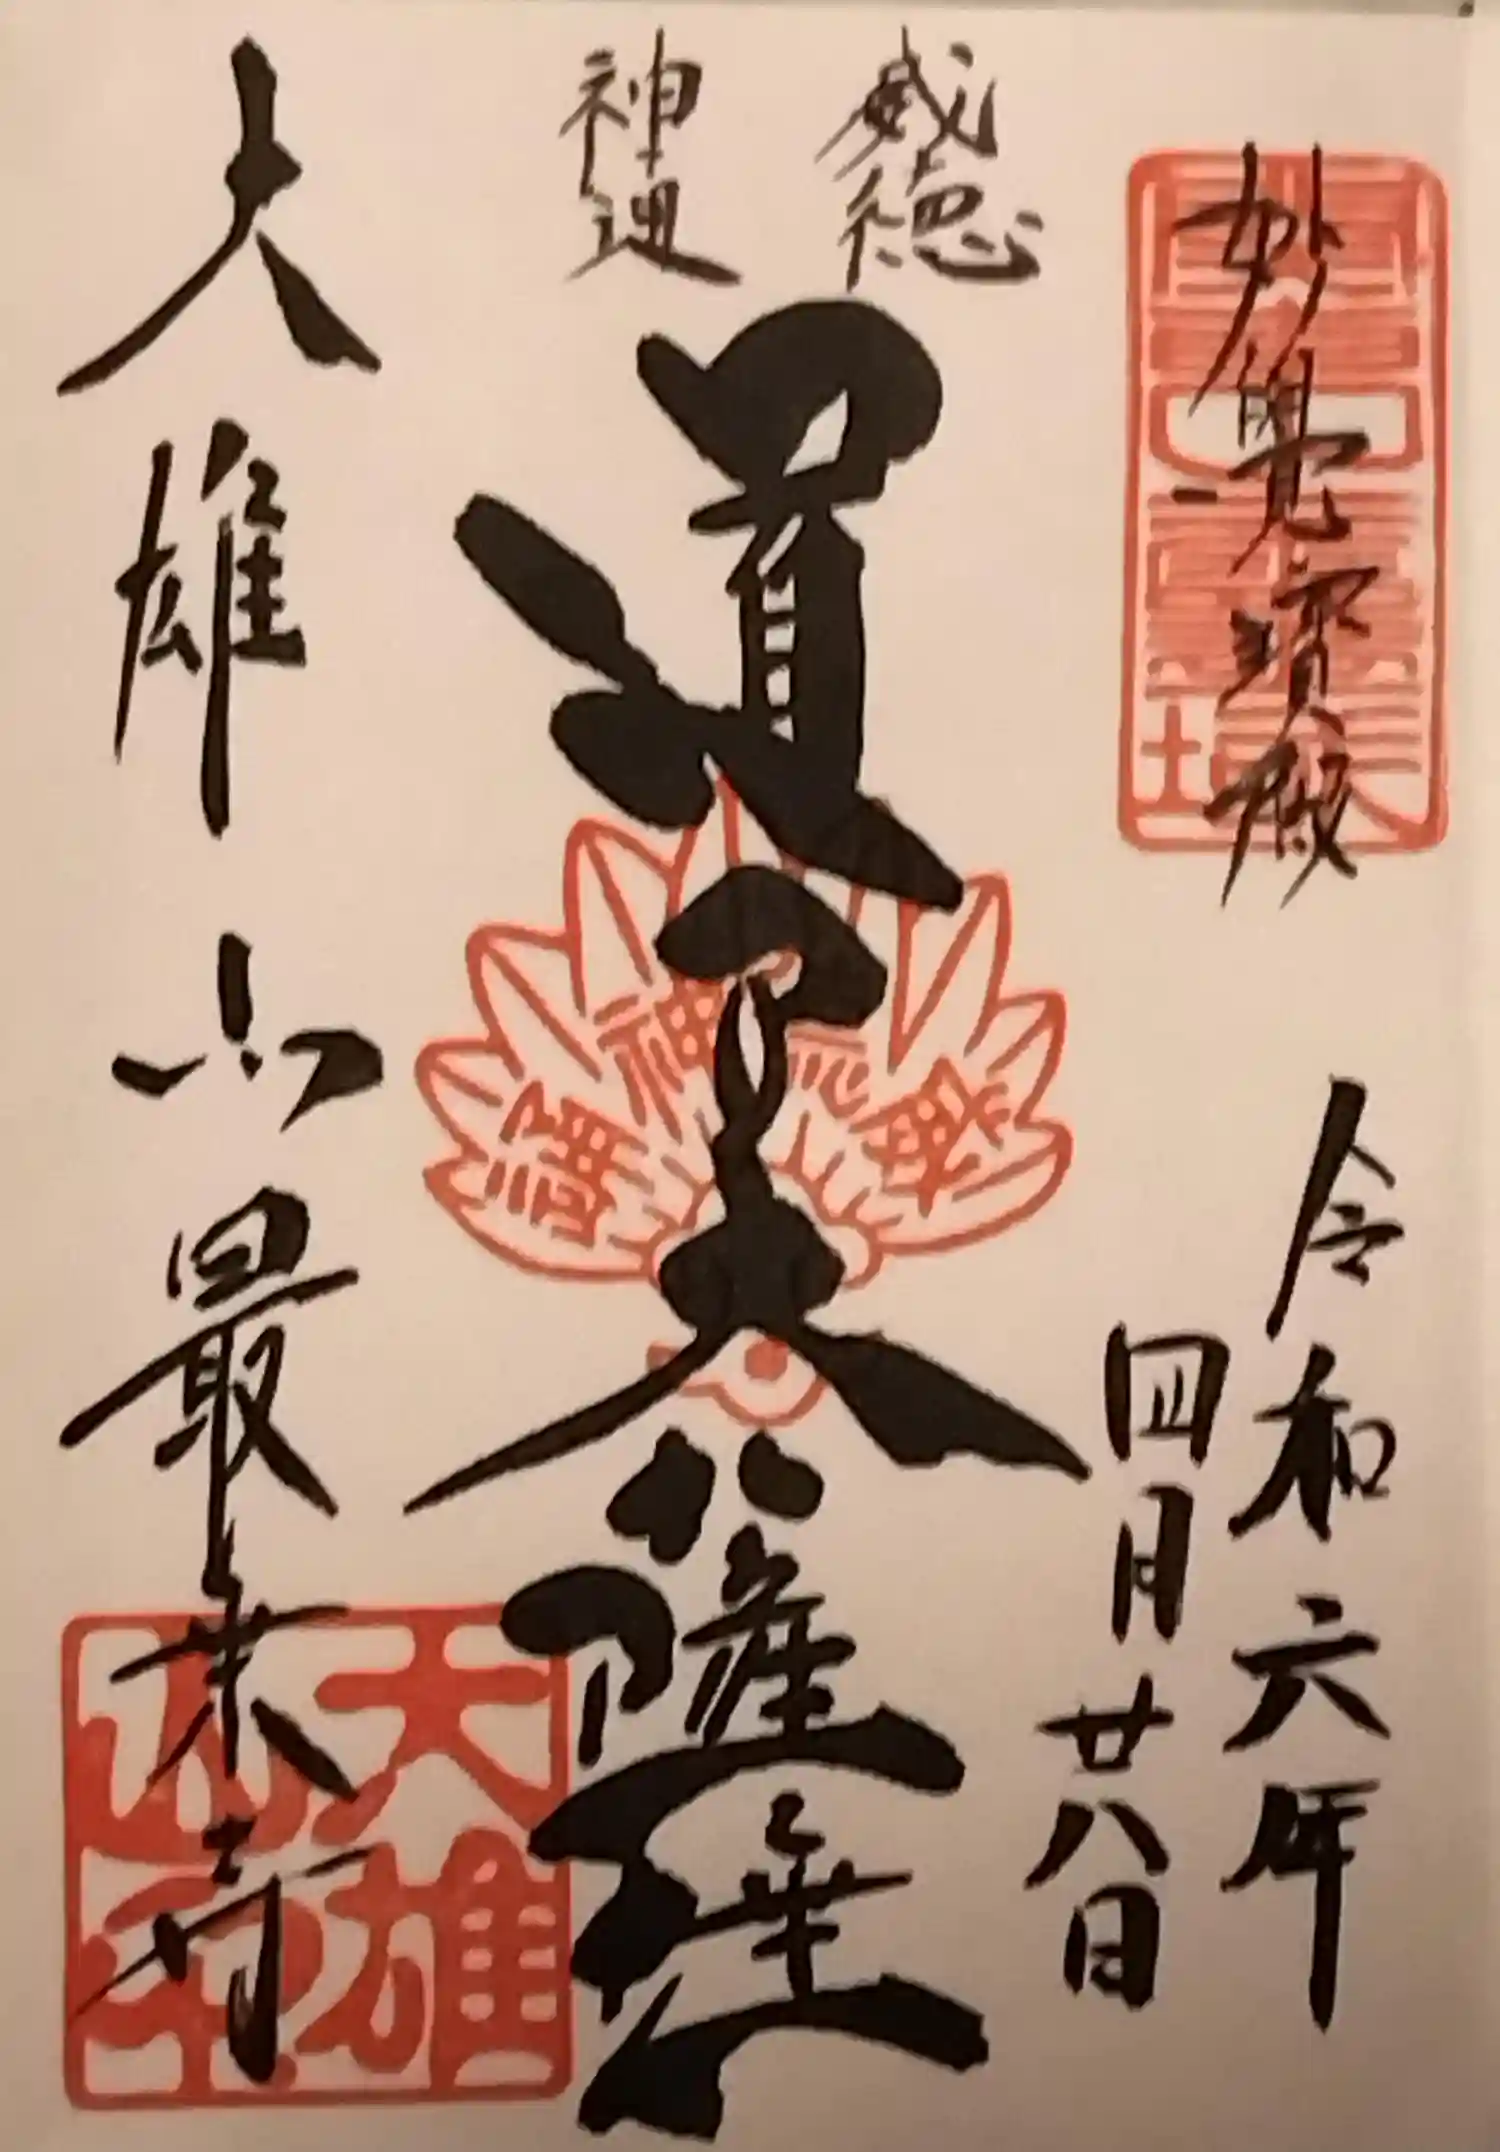 妙覺寶殿
令和六年
四月廿八日
威徳
神通
道了大薩埵
大雄山最乗寺
大雄山印